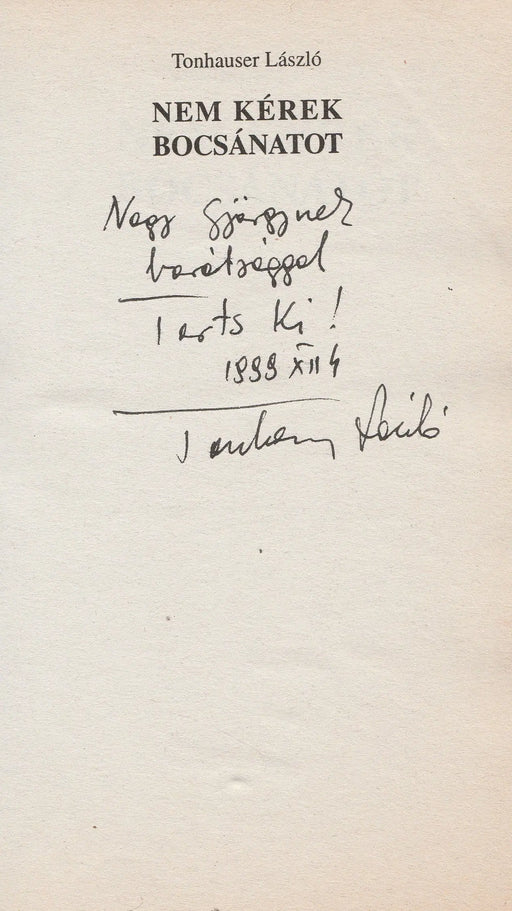 Tonhauser László
NEM KÉREK
BOCSÁNATOT
Nagy Györgynek
barátsággal
Tarts Ki!
1999 XII 4
László